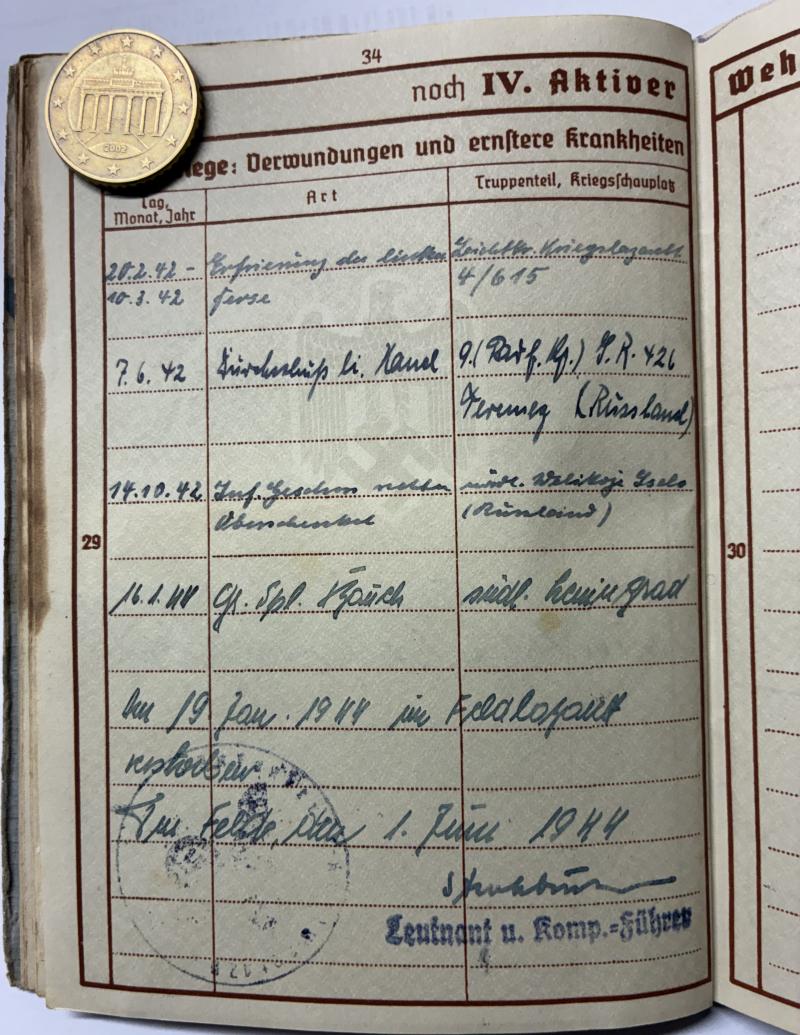 34
noch IV. Aktiver
lege: Verwundungen und ernstere Krankheiten
Tag, Monat, Jahr
Art
Truppenteil, Kriegsschauplatz
20.2.42 – 10.3.42
Erfrierung der linken Ferse
Leichtkr. Kriegslazarett 4/615
7. 6. 42
Durchschuß li. Hand
9. (Radf. Kp.) I. R. 426
(Russland)
14.10.42
Inf. Geschoss rechter Oberschenkel
nördl. Welikoje Sselo
(Russland)
29
16.1.44
Gr. Spl. Bauch
südl. Leningrad
Am 19 Jan. 1944 im Feldlazarett
verstorben
Im Felde, den 1. Juni 1944
Leutnant u. Komp.-Führer
Weh
30
2002